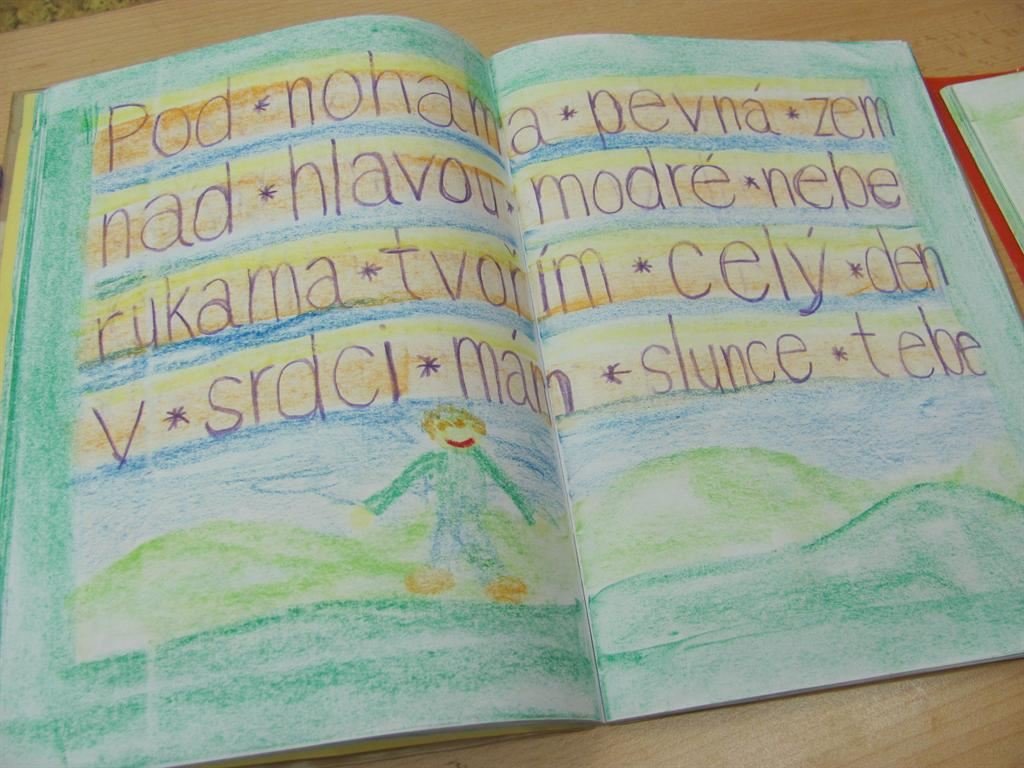 Pod * nohama * pevná * zem
nad * hlavou * modré * nebe
rukama * tvořím * celý * den
v * srdci * mám * slunce * tebe